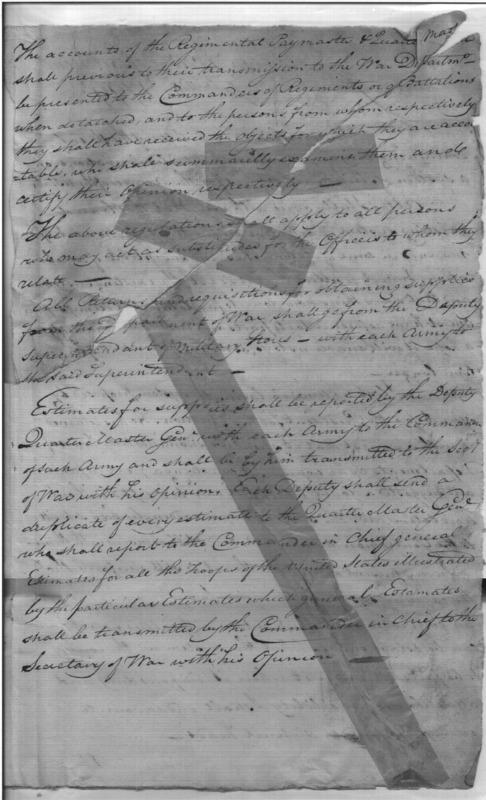 The accounts of the Regimental Paymaster & Quarter Mas
shall previous to their transmission to the War Departmt
be presented to the Commanders of Regiments or of Battalions
when detached, and to the persons from whom respectively
they shall have received the objects for which they are accou
ntable, who shall summarily examine them and
certify their Opinion respectively —
The above regulations shall apply to all persons
who may act as substitutes for the Officers to whom they
relate. —
All Returns and requisitions for obtaining supplies
from the Department of War shall go from the Deputy
Superintendant of Military Stores — with each Army to
the said Superintendant —
Estimates for supplies shall be reported by the Deputy
Quarter Master Genl. with each Army to the Commander
of such Army and shall be by him transmitted to the Secy
of War with his opinion. Each Deputy shall send a
duplicate of every estimate to the Quarter Master Genl
who shall report to the Commander in Chief general
Estimates for all the troops of the United States illustrated
by the particular Estimates which general Estamates
shall be transmitted by the Commander in Chief to the
Secretary of War with his Opinion —